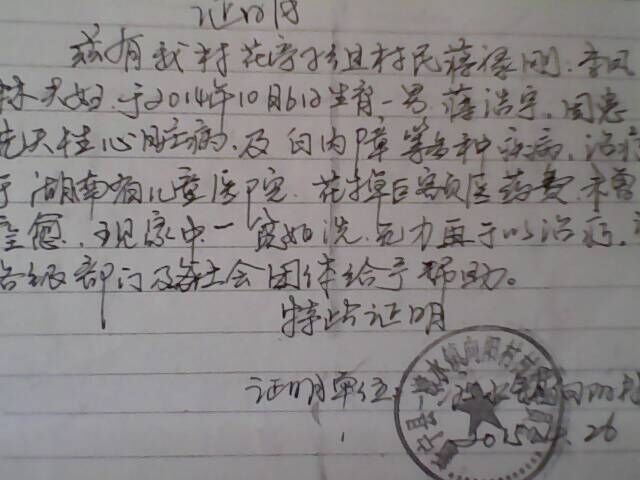 证明
兹有我村花亭子组村民蒋禄刚、李凤
林夫妇,于2014年10月6日生育一男蒋浩宇,因患
先天性心脏病,及白内障等多种疾病,治疗
于湖南省儿童医院,花掉巨额医药费,未曾
全愈,现家中一贫如洗,无力再于以治疗,
各级部门及社会团体给予帮助。
特此证明
证明单位:
2015 26